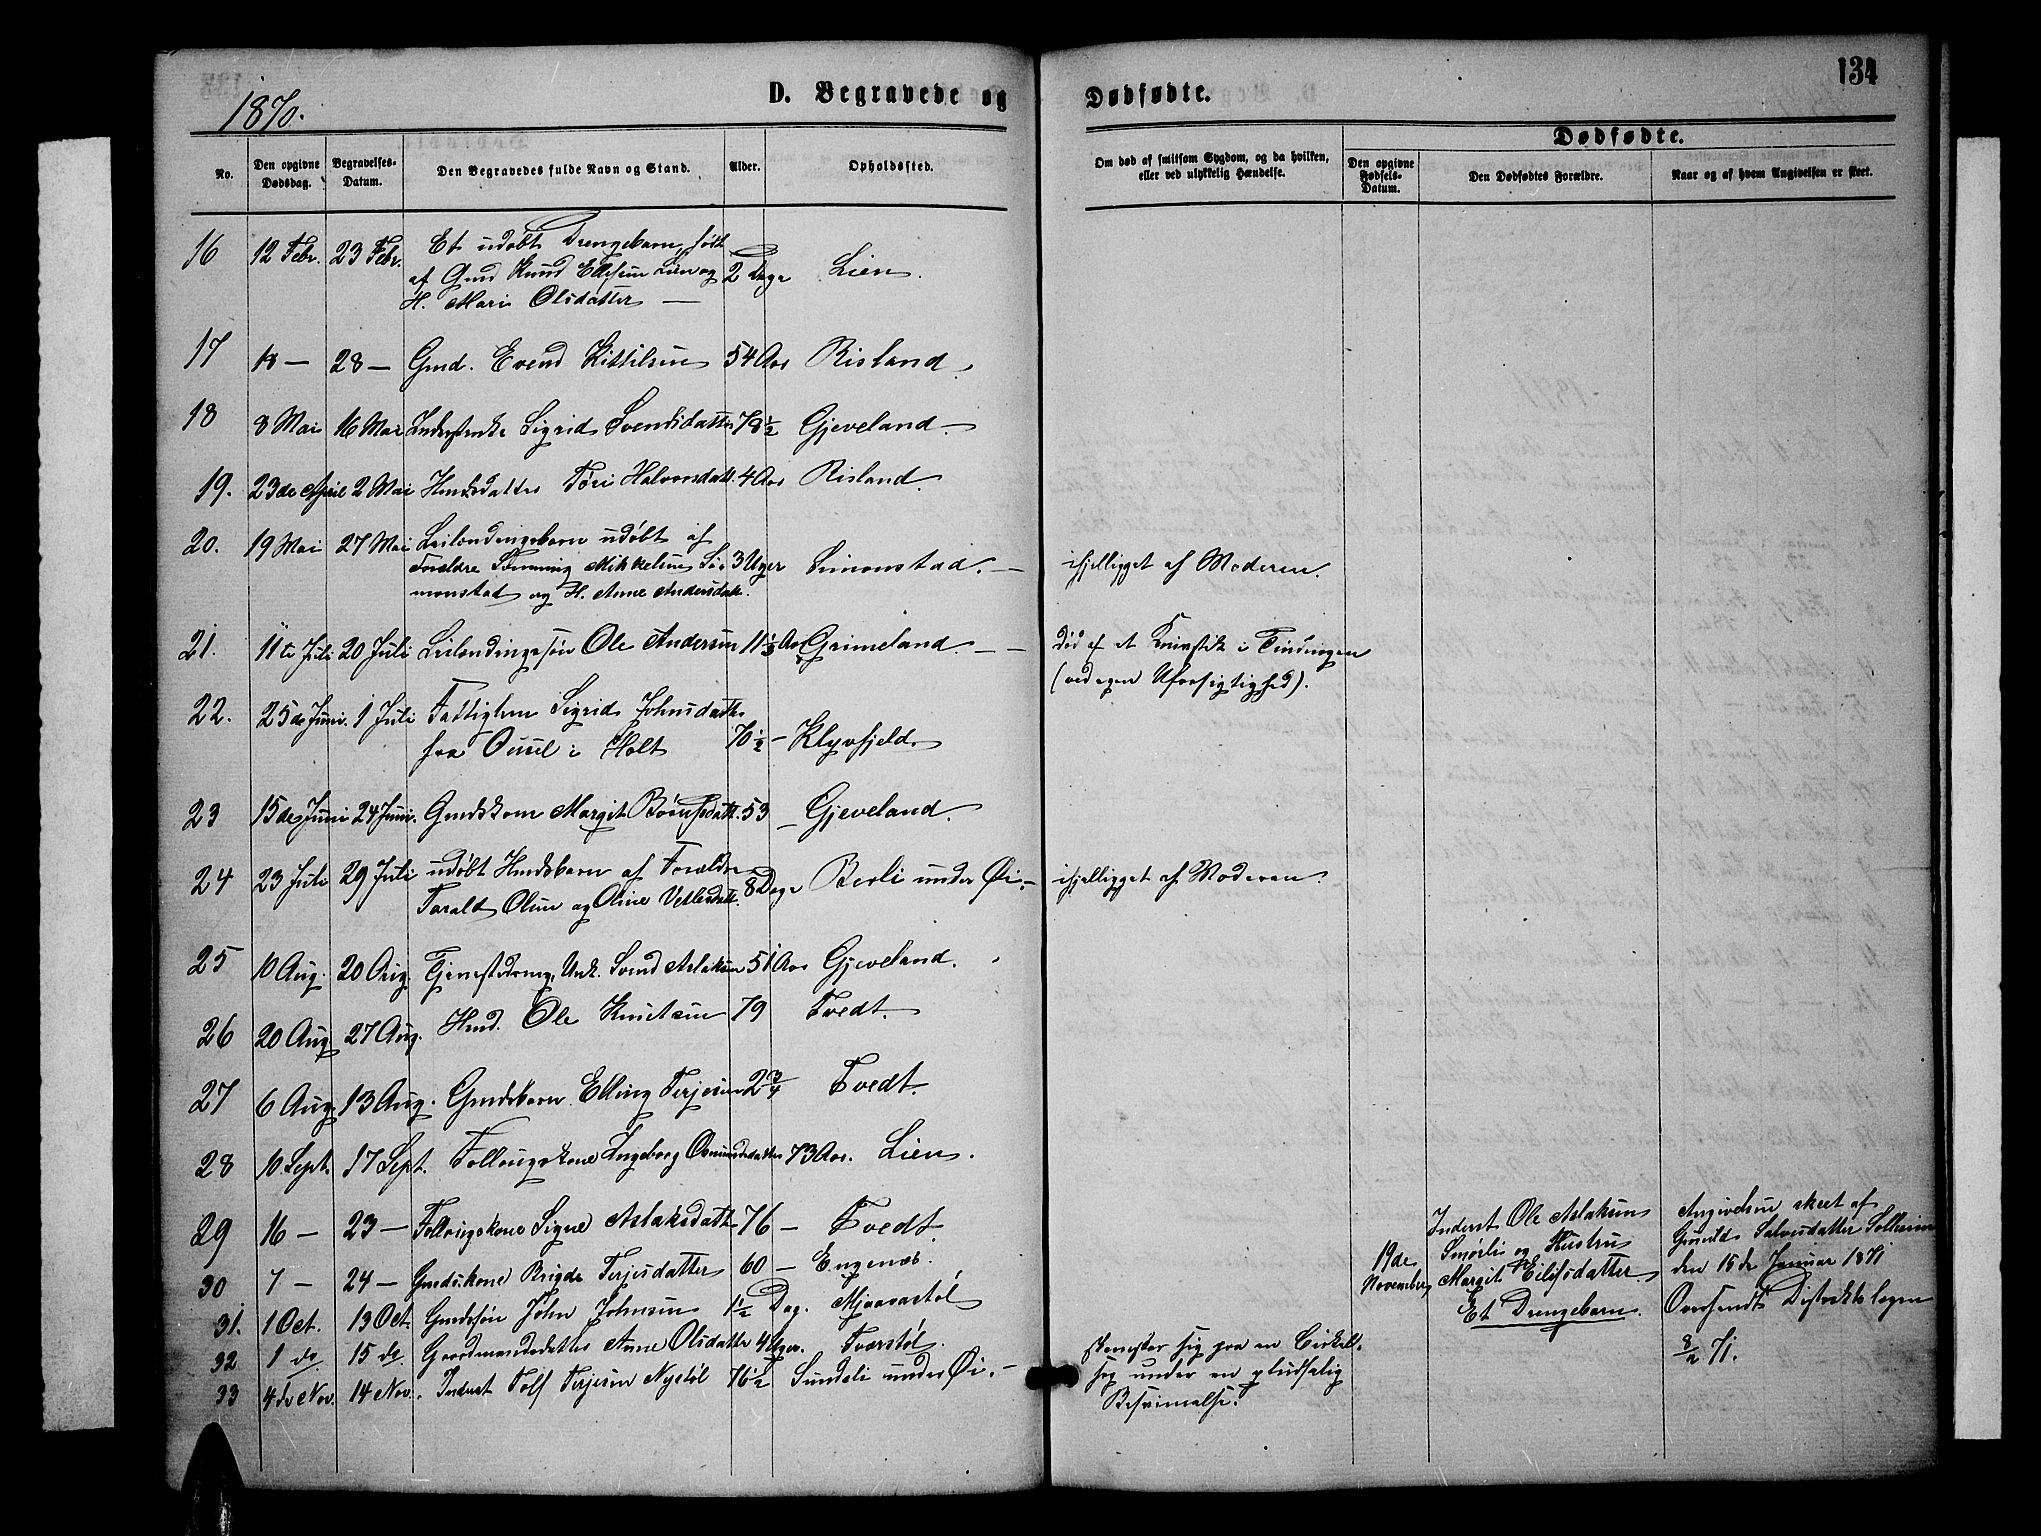 134
1870.
D. Begravede og Dødfødte.
No.
Den opgivne Dødsdag.
Begravelses-Datum.
Den Begravedes fulde Navn og Stand.
Alder.
Opholdssted.
Om død af smitsom Sygdom, og da hvilken, eller ved ulykkelig Hændelse.
Dødfødte.
Den opgivne Fødsels-Datum.
Den Dødfødtes Forældre.
Naar og af hvem Angivelsen er skeet.
16 12 Febr. 23 Febr. Et udøbt Drengebarn, født
af Gmd Knud Ellefsen Lien og 2 Dage Lien.
H. Mari Olsdatter —
17 18 — 28 — Gmd. Evend Kittilsen 54 Aar Risland.
18 8 Mai 16 Mai Inderstenke Sigrid Svendsdatter 78½ Gjeveland. —
19. 23de April 2 Mai Hmdsdatter Tøri Halvorsdatt. 4 Aar Risland.
20. 19 Mai 27 Mai Leilendingsbarn udøbt af
Forældre Flemming Mikkelsen Si- 3 Uger Simonstad. — ihjelligget af Moderen.
monstad og H. Anne Andersdatt.
21. 11te Juli 20 Juli Leilendingssøn Ole Andersen 11½ Aar Grimeland. — — død af et Knivstik i Tindingen
(ved egen Uforsigtighed).
22. 25de Juni. 1 Juli Fattiglem Sigrid Johnsdatter
fra Ousel i Holt 70½ — Klyvfjeld.
23 15de Juni 24 Juni. Gmdskone Margit Børufsdatt. 53 — Gjeveland.
24 23 Juli 29 Juli udøbt Hmdsbarn af Forældre
Torald Olsen og Oline Vetlesdatt. 8 Dage Berli under Øi. — ihjelligget af Moderen.
25 10 Aug. 20 Aug. Tjenestedreng, Unk. Svend Aslaksen 51 Aar Gjeveland.
26 20 Aug. 27 Aug. Hmd. Ole Knutsen 79 Tvedt.
27 6 Aug. 13 Aug. Gmdsbarn Elling Terjesen 2¾ Tvedt.
28 10 Sept. 17 Sept. Føllougskone Ingeborg Osmundsdatter 73 Aar. Lien.
29 16 — 23 — Føllougskone Signe Aslaksdatt 76 — Tvedt.
30 7 — 24 — Gmdskone Brigde Terjesdatter 60 — Engenæs.
31. 1 Oct. 13 Oct. Gmdssøn John Johnsen 1½ Dag. Mjaavastøl
32 1 do 15 do. Gaardmandsdatter Anne Olsdatter 4 Uger. Tværstøl.
33 4de Nov. 14 Nov. Inderst Tolf Terjesen Nystøl 76½ Sundeli under Øi. —
sig paa en Cirkel-
sag under en pludselig
Besvimelse.
19de November
Inderst Ole Aslaksen
Smørli og Hustru
Margit Eilifsdatter
Et Drengebarn.
Angivelsen skeet af
Gunild Salvesdatter Solheim
den 15de Januar 1871
Oversendt Distriktslægen
3/2 71.